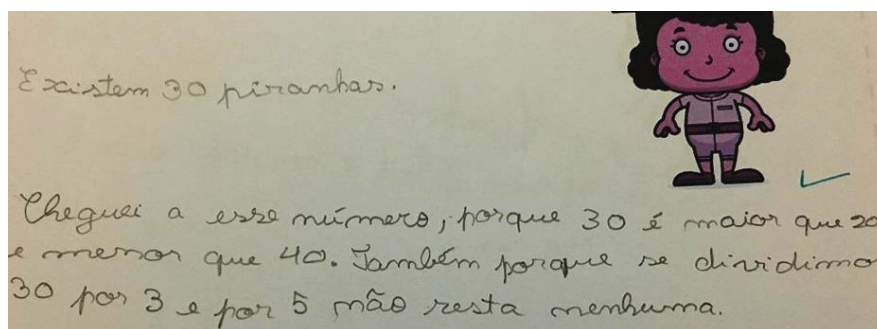 Existem 30 piranhas.
Cheguei a esse número, porque 30 é maior que 20
e menor que 40. Também porque se dividimo
30 por 3 e por 5 não resta nenhuma.